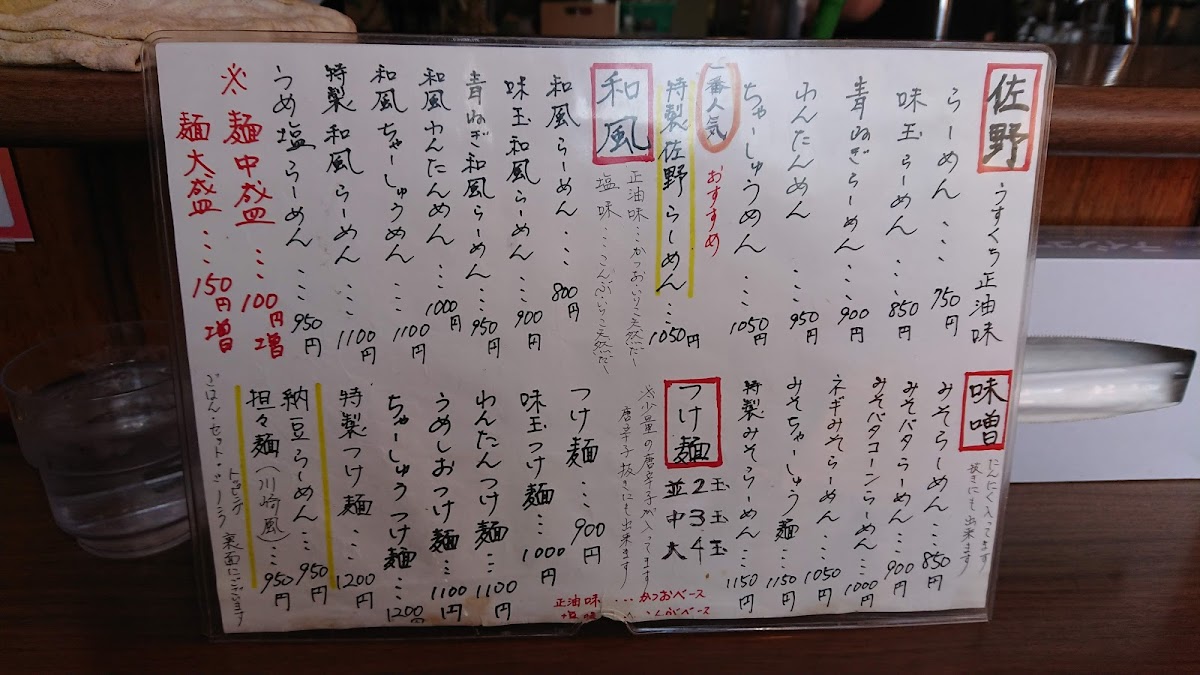 佐野 うすくち正油味
らーめん … 750円
味玉らーめん … 850円
青ねぎらーめん … 900円
わんたんめん … 950円
ちゃーしゅうめん … 1050円
一番人気 おすすめ
特製佐野らーめん … 1050円
和風
正油味…かつお・いりこ天然だし
塩味…こんぶ・いりこ天然だし
和風らーめん … 800円
味玉和風らーめん … 900円
青ねぎ和風らーめん … 950円
和風わんたんめん … 1000円
和風ちゃーしゅうめん … 1100円
特製和風らーめん … 1100円
うめ塩らーめん … 950円
※麺中盛 … 100円増
麺大盛 … 150円増
味噌
にんにく入ってます
抜きにも出来ます
みそらーめん … 850円
みそバタらーめん … 900円
みそバタコーンらーめん … 1000円
ネギみそらーめん … 1050円
みそちゃーしゅう麺 … 1150円
特製みそらーめん … 1150円
つけ麺
並2玉
中3玉
大4玉
※少量の唐辛子が入ってます
唐辛子抜きにも出来ます
つけ麺 … 900円
味玉つけ麺 … 1000円
わんたんつけ麺 … 1100円
うめしおつけ麺 … 1100円
ちゃーしゅうつけ麺 … 1200円
特製つけ麺 … 1200円
納豆らーめん … 950円
担々麺(川崎風) … 950円
ごはん・セット・
トッピング
裏面にございます
正油味 … かつおベース